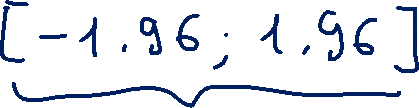 [-1.96; 1.96]